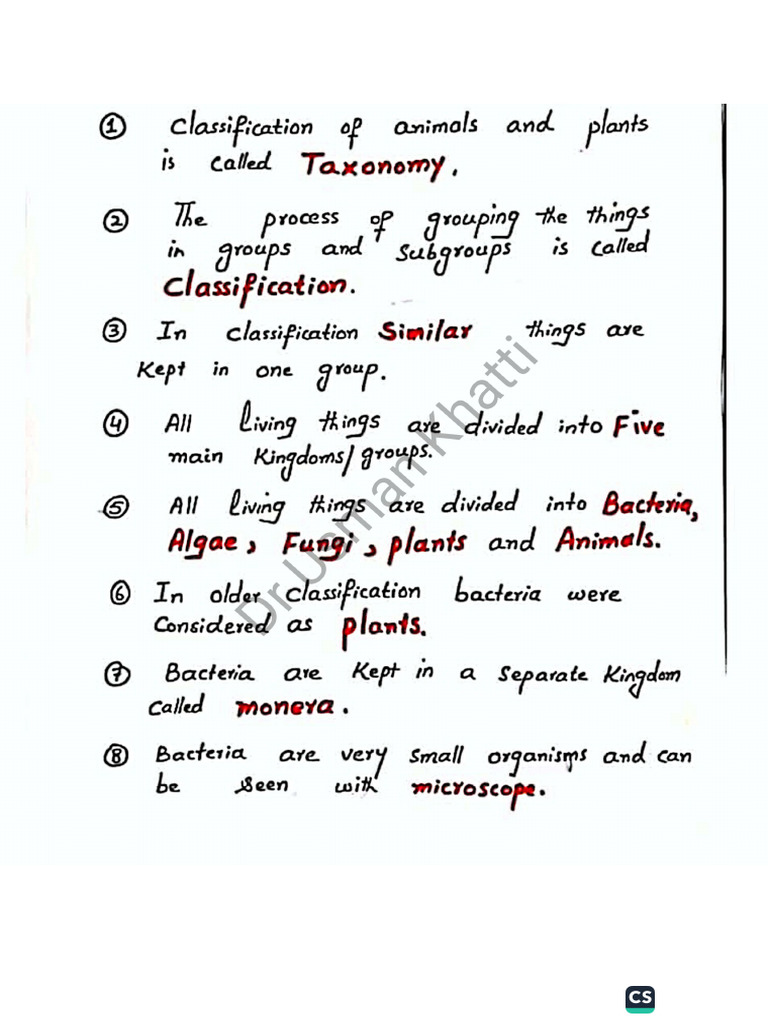 ① Classification of animals and plants
is called Taxonomy.
② The process of grouping the things
in groups and subgroups is called
Classification.
③ In classification Similar things are
Kept in one group.
④ All living things are divided into Five
main Kingdoms/groups.
⑤ All living things are divided into Bacteria,
Algae, Fungi, plants and Animals.
⑥ In older classification bacteria were
Considered as plants.
⑦ Bacteria are Kept in a separate Kingdom
called monera.
⑧ Bacteria are very small organisms and can
be seen with microscope.
Dr Usman Khatti
CS